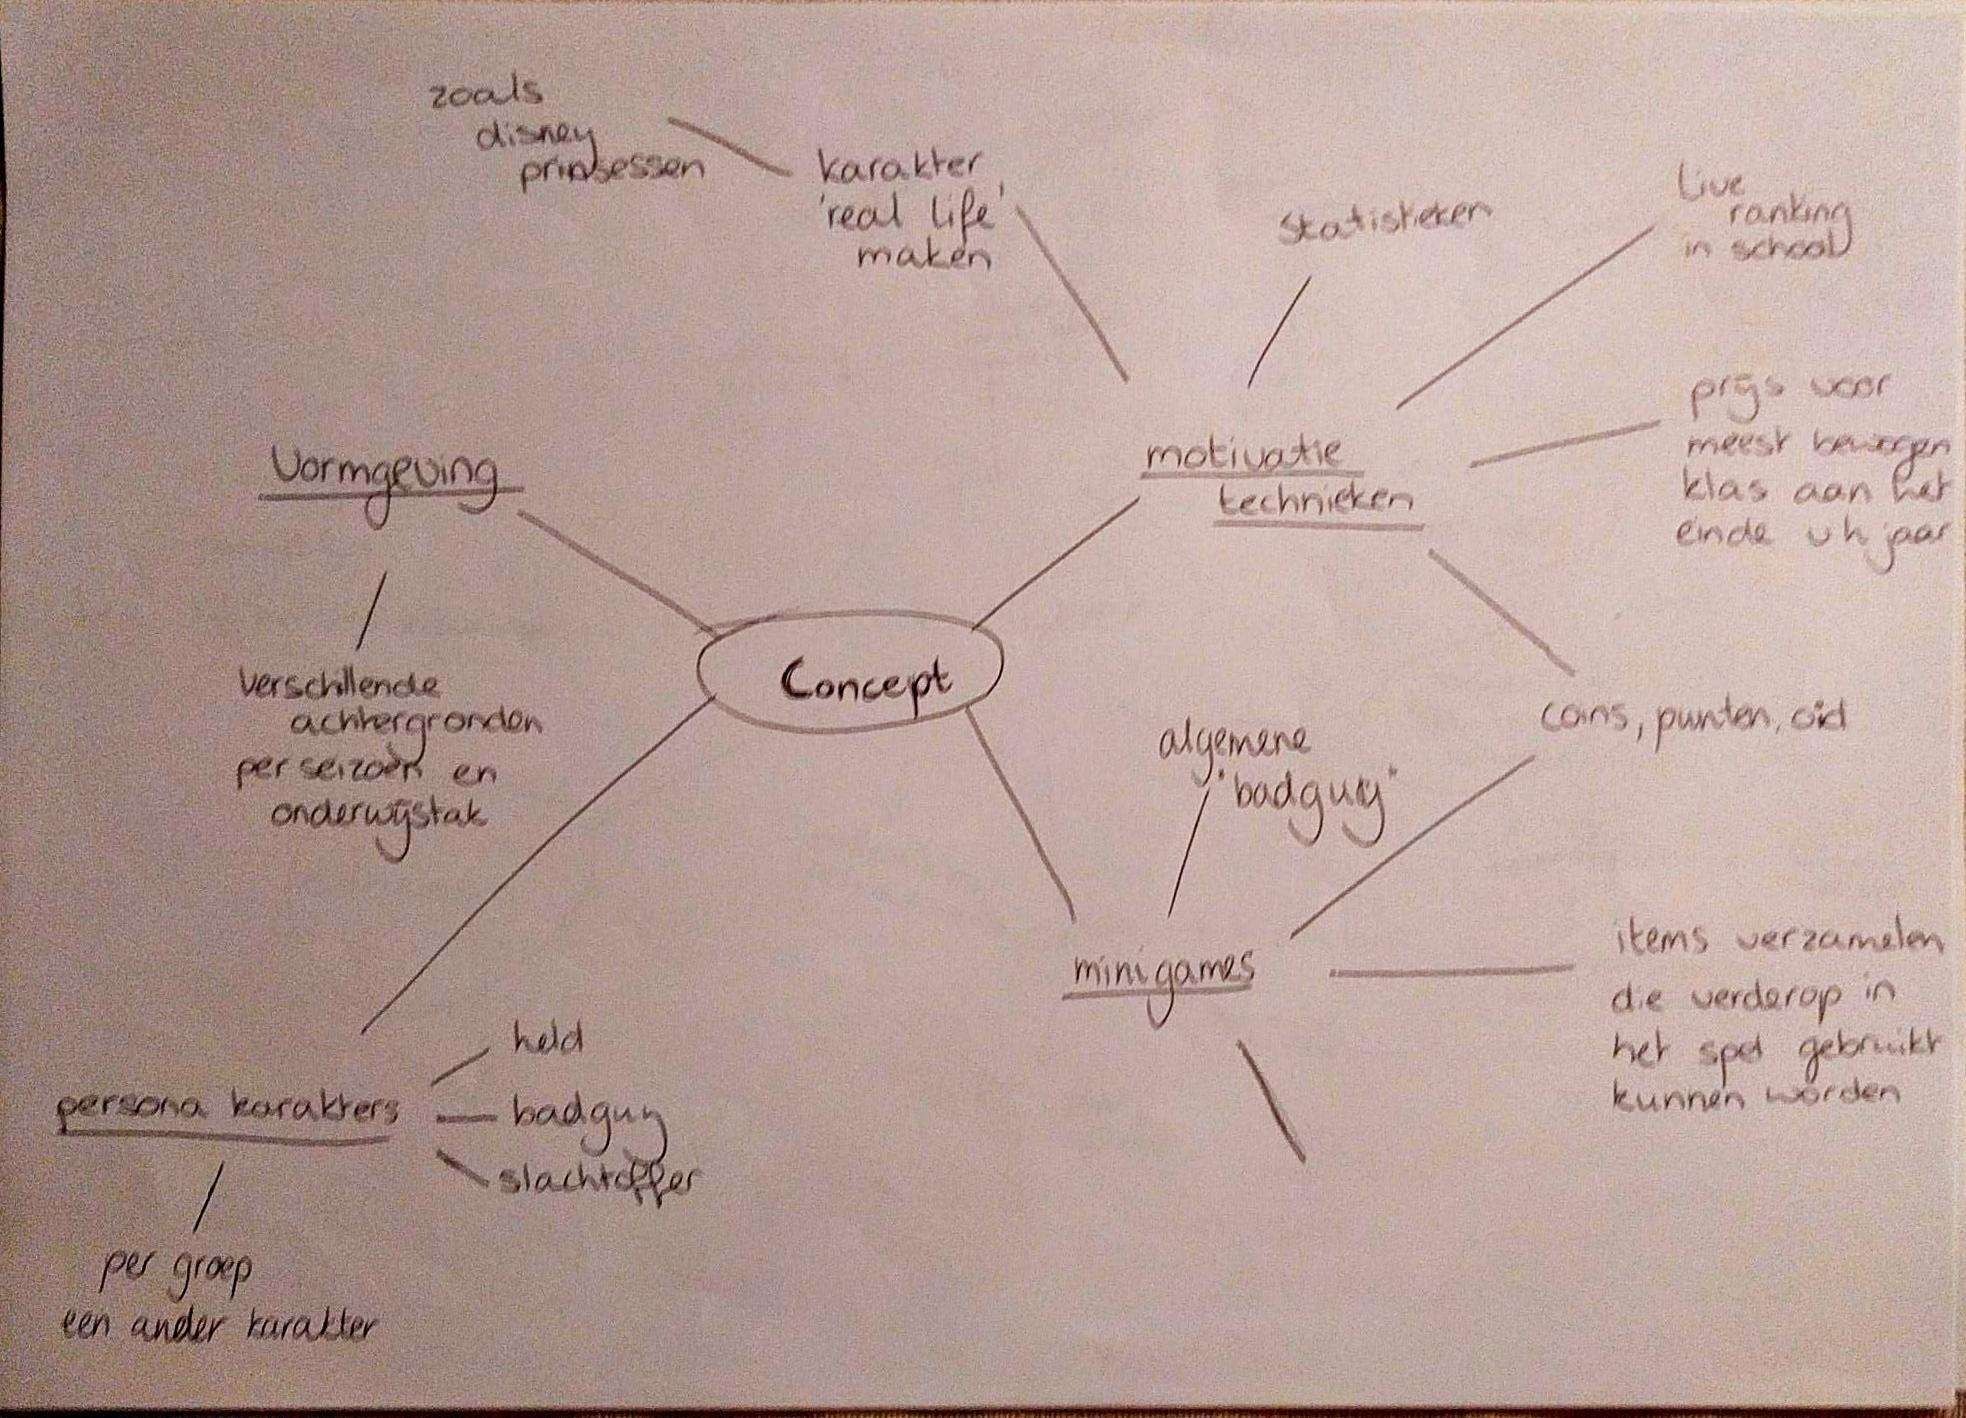 zoals
disney
prinsessen
karakter
'real life'
maken
statistieken
live
ranking
in school
prijs voor
meest bewogen
klas aan het
einde v h jaar
motivatie
technieken
Vormgeving
verschillende
achtergronden
per seizoen en
onderwijstak
Concept
coins, punten, oid
algemene
"badguy"
minigames
items verzamelen
die verderop in
het spel gebruikt
kunnen worden
persona karakters
held
badguy
slachtoffer
per groep
een ander karakter